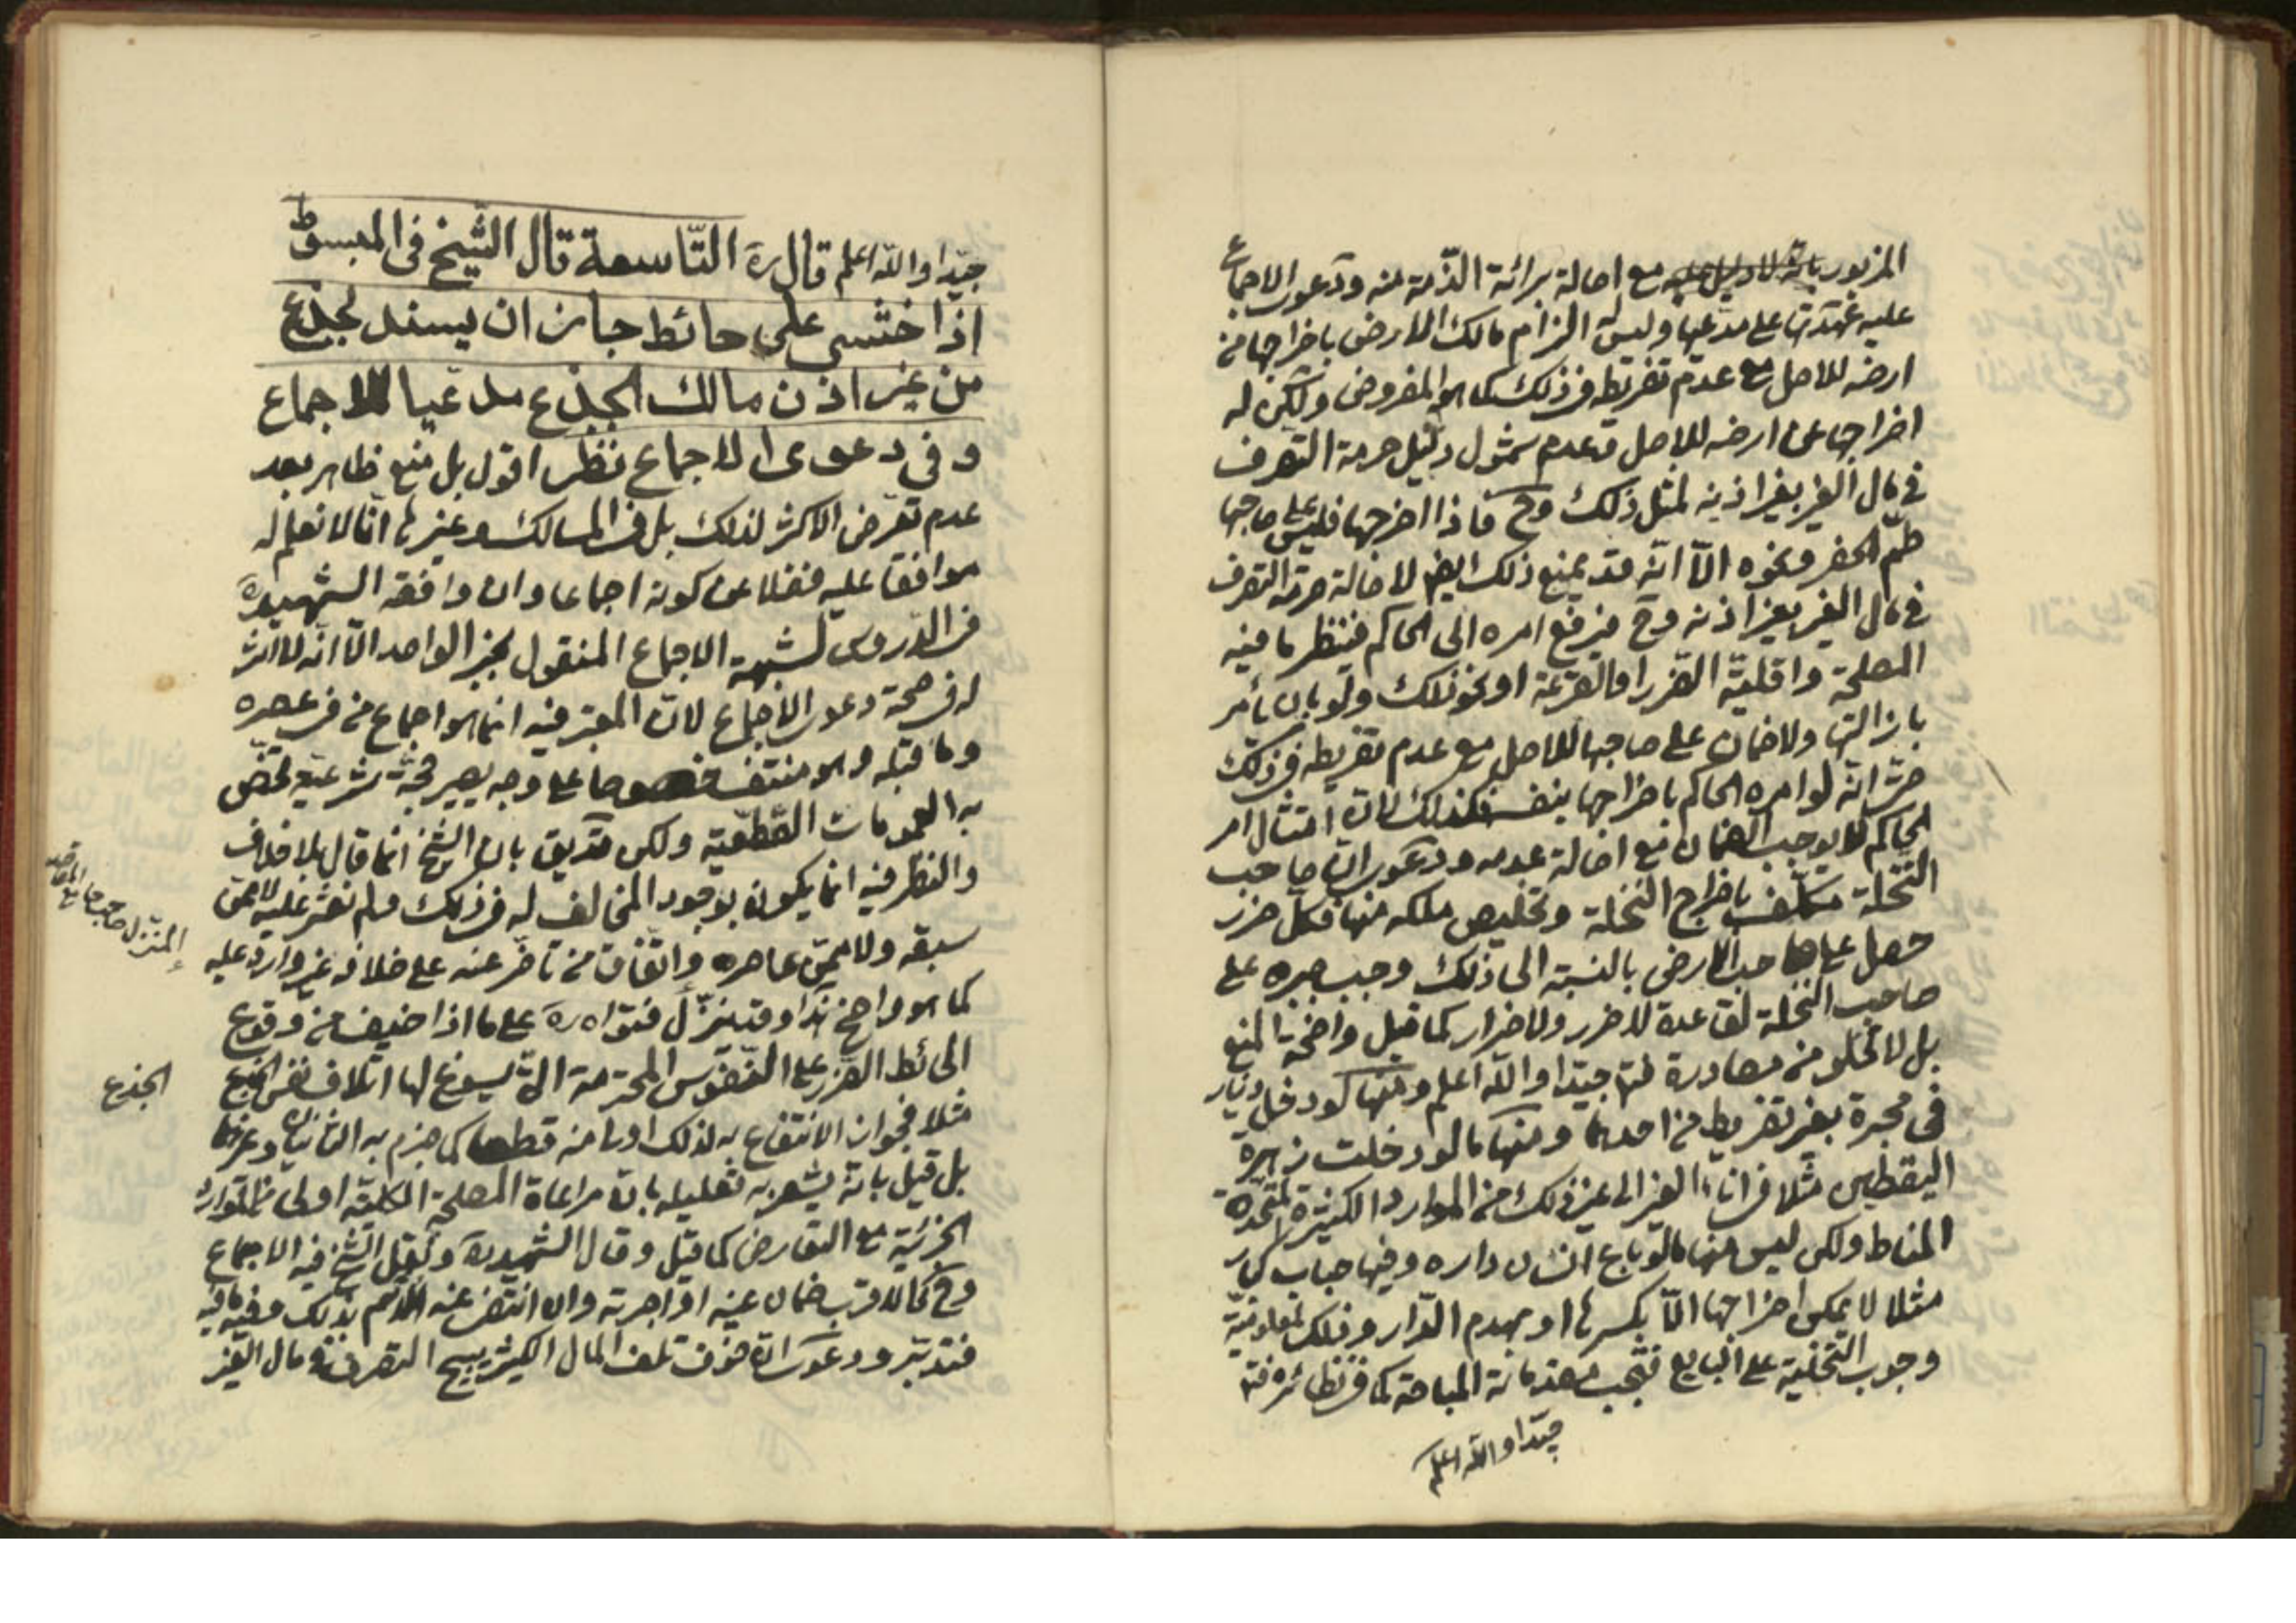 المزبور بانه لا دليل عليه مع اصالة برائة الذّمة منه ودعوى الاجماع
عليه عهدتها على مدعيها وليس له الزام مالك الارض باخراجها من
ارضه للاصل مع عدم تفريطه فى ذلك كما هو المفروض ولكن له
اخراجها عن ارضه للاصل وعدم شمول دليل حرمة التصرف
فى مال الغير بغير اذنه لمثل ذلك وح فاذا اخرجها فليس على صاحبها
طمّ الحفر ونحوه الّا انّه قد يمنع ذلك ايض لاصالة حرمة التصرف
فى مال الغير بغير اذنه وح فيرفع امره الى الحاكم فينظر ما فيه
المصلحة واقليّة الضرر او القرعة او نحو ذلك ولو بان يأمر
بازالتها ولا ضمان على صاحبها للاصل مع عدم تفريطه فى ذلك
حتى انّه لو امره الحاكم باخراجها بنفسه فكذلك لانّ امتثال امر
الحاكم لا يوجب الضمان مع اصالة عدمه ودعوى انّ صاحب
النّخلة مكلّف باخراج النّخلة وتخليص ملكه منها فكلّ ضرر
حصل على صاحب الارض بالنسبة الى ذلك وجب جبره على
صاحب النخلة لقاعدة لا ضرر ولا ضرار كما قيل واضحة المنع
بل لا تخلو من مصادرة فتا جيّدا والله اعلم ومنها كو دخل دينار
فى محبرة بغير تفريط من احدهما ومنها ما لو دخلت زهرة
اليقطين مثلا فى اناء الغير الى غير ذلك من الموارد الكثيرة المتّحدة
المناط ولكن ليس منها ما لو باع انسان داره وفيها حباب كبار
مثلا لا يمكن اخراجها الّا بكسرها او بهدم الدّار وذلك لمعلوميّة
وجوب التّخلية على البايع فتجب مقدماته المباحة كما فى نظائره فتا
جيّدا والله اعلم
جيّدا والله اعلم قال ره التّاسعة قال الشّيخ فى المبسوط
اذا خشى على حائط جاز ان يسند بجذع
من غير اذن مالك الجذع مدّعيا للاجماع
وفى دعوى الاجماع نظر اقول بل منع ظاهر بعد
عدم تعرّض الاكثر لذلك بل فى المسالك وغيرها انّا لا نعلم له
موافقا عليه فضلا عن كونه اجماعا وان وافقه الشهيد ره
فى الدّروس لشبهة الاجماع المنقول بخبر الواحد الّا انّه لا اثر
له فى صحة دعوى الاجماع لانّ المعتبر فيه انما هو اجماع من فى عصره
وما قبله وهو منتف خصوصا على وجه يصير حجّة شرعيّة تخصّ
به العمومات القطعيّة ولكن قد يق بانّ الشّيخ انّما قال بلا خلاف
والنظر فيه انما يكون بوجود المخالف له فى ذلك ولم نعثر عليه لا ممّن
سبقه ولا ممّن عاصره واتّفاق من تأخّر عنه على خلافه غير وارد عليه
كما هو واضح هذا وقد ينزّل فتواه ره على ما اذا خيف من وقوع
الحائط الضّرر على النّفوس المحترمة الّتى يسوغ لها اتلاف نفس الجذع
مثلا فجواز الانتفاع به لذلك اولى منه قطعا كما جزم به الثانيان وغيرهما
بل قيل بانّه يشعر به تعليله بانّ مراعاة المصلحة الكليّة اولى من الموارد
الجزئيّة مع التعارض كما قيل وقال الشهيد ره وينقل الشّيخ فيه الاجماع
وح كما لا قرب ضمان عينه او اجرته وان انتفى عنه الاثم بذلك وفيه ما فيه
فتدبّر ودعوى انّ خوف تلف المال الكثير يبيح التصرف فى مال الغير
المنزل صاحب جامع المقاصد
الجذع